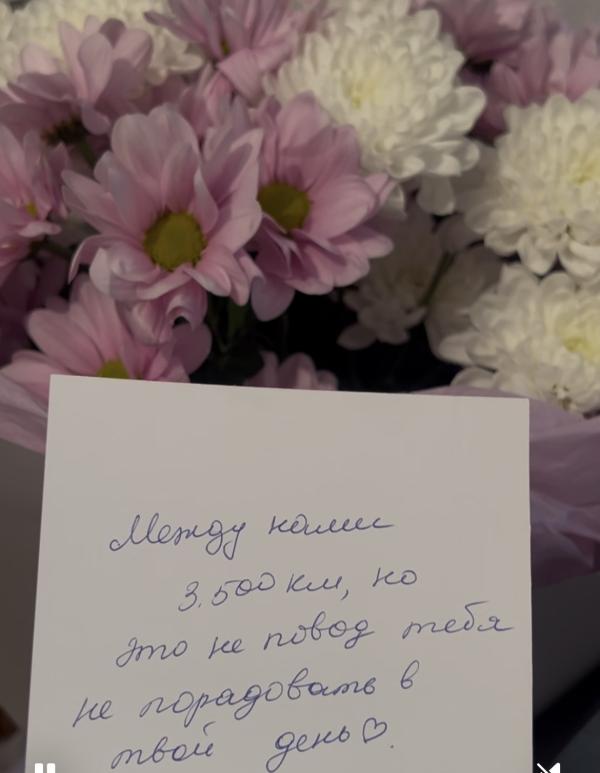 Между нами
3.500 км, но
это не повод тебя
не порадовать в
твой день♡.